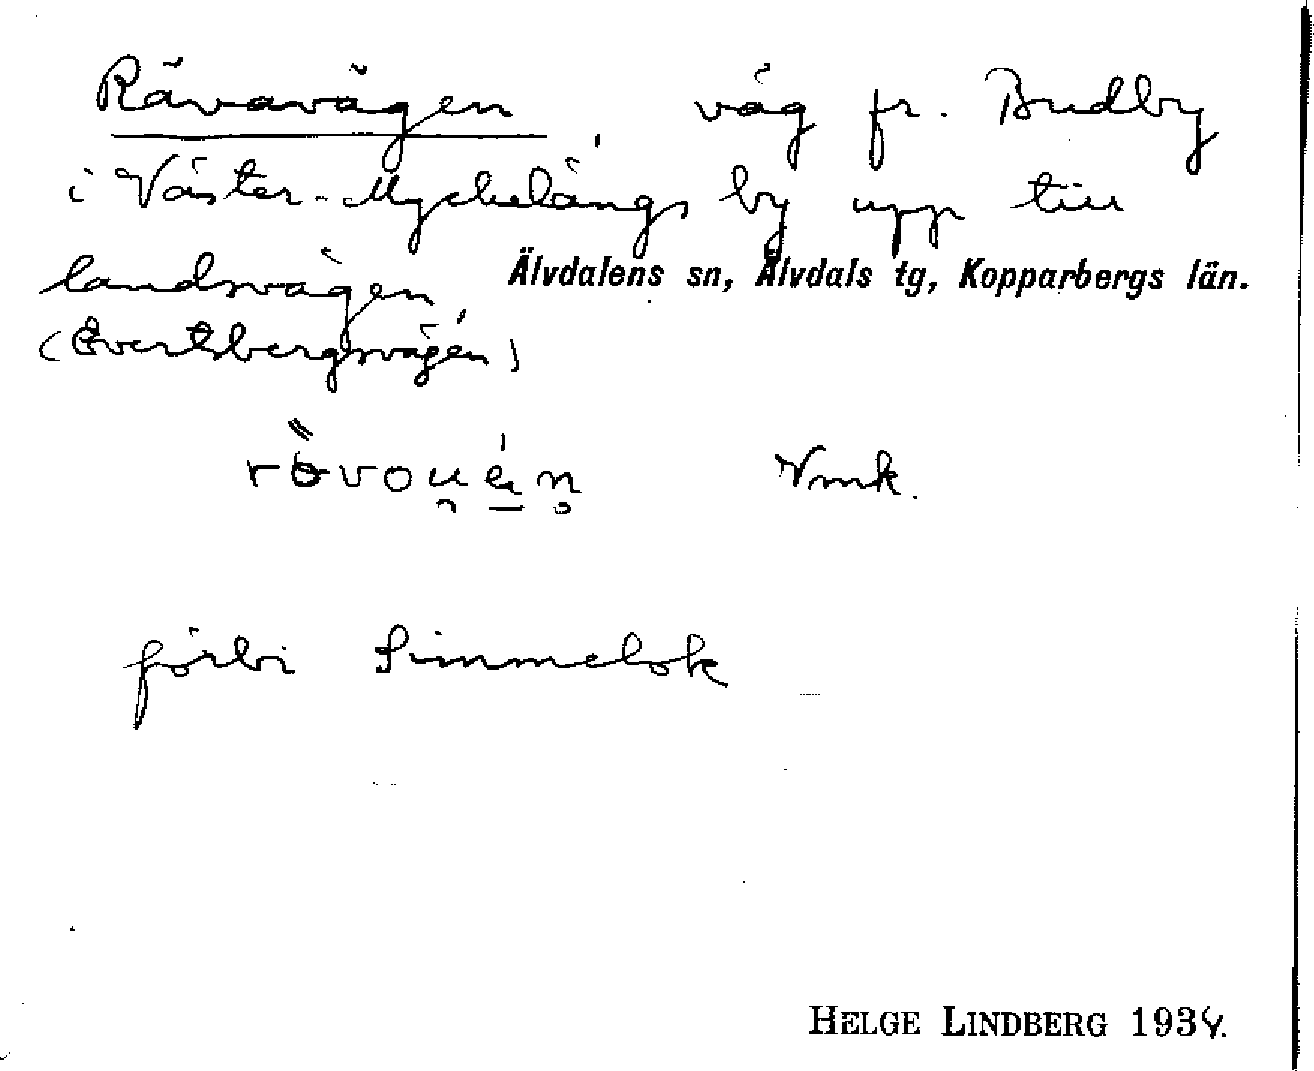 Rävavägen väg fr. Budby
i Väster-Myckelängs by upp till
landsvägen
Älvdalens sn, Älvdals tg, Kopparbergs län.
(Evertsbergsvägen)
Vmk.
förbi Simmelok
HELGE LINDBERG 1934.